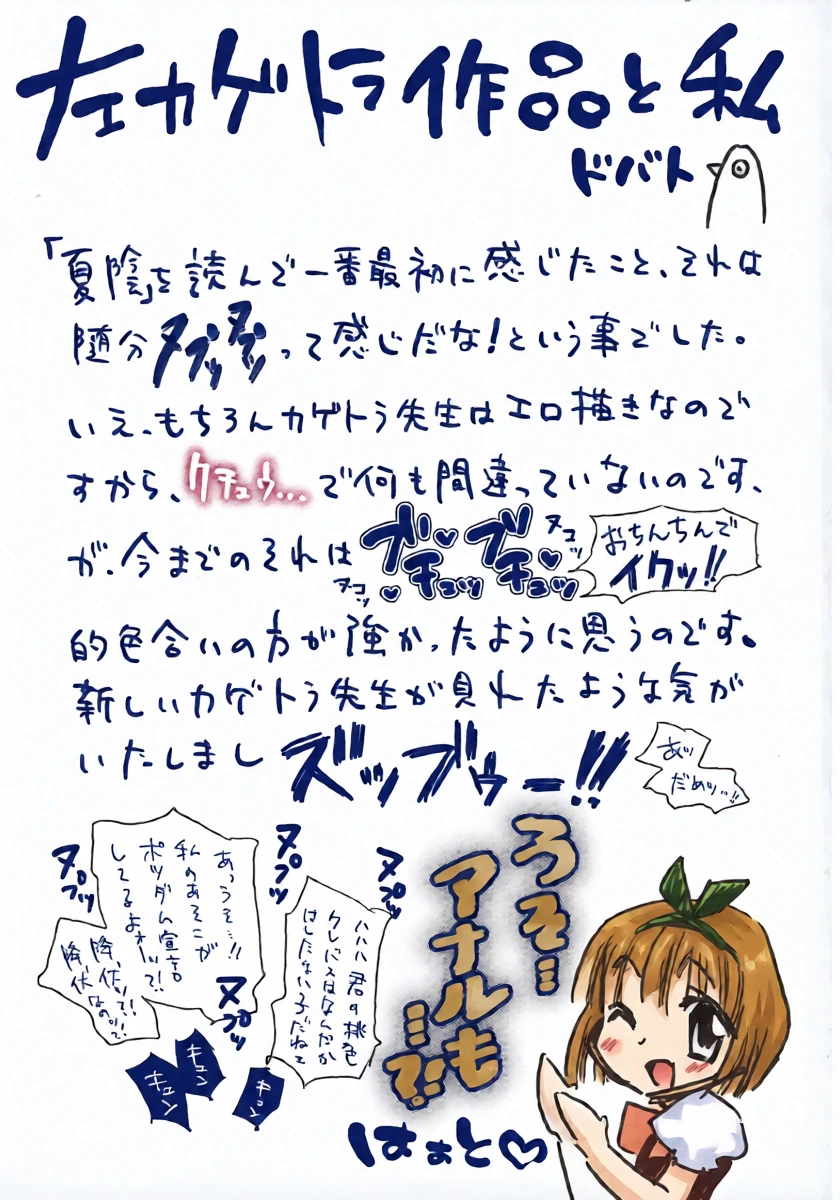 左カゲトラ作品と私
ドバト
「夏陰」を読んで一番最初に感じたこと、それは
随分ヌプッヌプッって感じだな!という事でした。
いえ、もちろんカゲトラ先生はエロ描きなので
すから、クチュゥ…で何も間違っていないのです、
が、今までのそれは
ブチュッブチュッ
ヌコッ
ヌコッ
おちんちんで
イクッ!!
的色合いの方が強かったように思うのです。
新しいカゲトラ先生が見れたような気が
いたしまし
ズッブゥー!!!
あッ
だめッ…!!
うそ…
アナルも
…で!?
ヌプッ
ハハハ 君の桃色
クレバスはなんだか
はしたない子だねェ
ヌプッ
あっうそ…!!
私のあそこが
ポツダム宣言
してるよォーッ?!
降伏ッ?!
降伏なのッ?!
ヌプッ
ヌプッ
キュン
キュン
キュン
はぁと♡